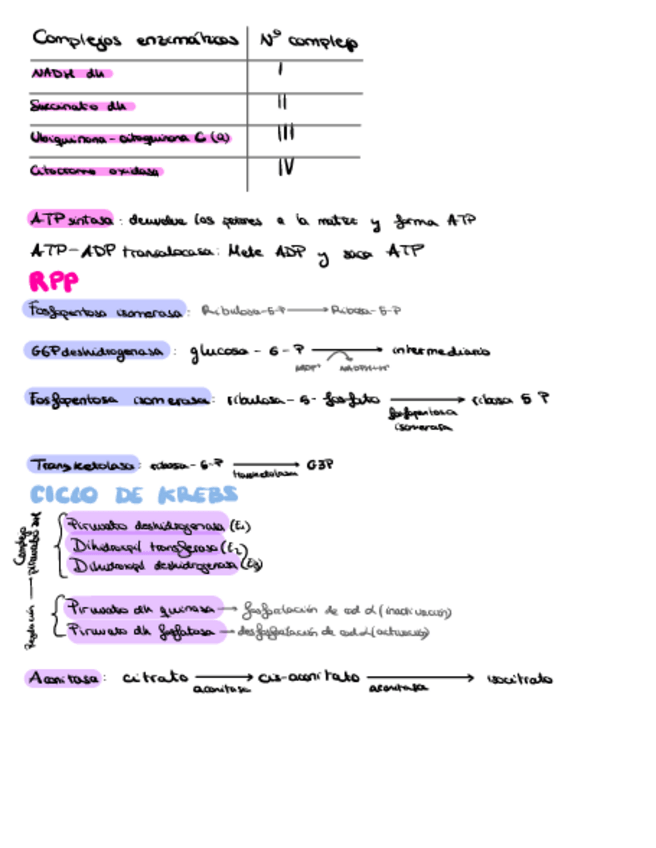 Complejos enzimáticos Nº complejo
NADH dh I
Succinato dh II
Ubiquinona - citoquinona C (Q) III
Citocromo oxidasa IV
ATP sintasa: devuelve los protones a la matriz y forma ATP
ATP-ADP translocasa: Mete ADP y saca ATP
RPP
Fosfopentosa isomerasa: Ribulosa-5-P → Ribosa-5-P
G6P deshidrogenasa: glucosa - 6 - P → intermediario
NADP+ NADPH+H+
Fosfopentosa isomerasa: ribulosa - 5 - fosfato → ribosa 5 P
fosfopentosa
isomerasa
Transketolasa: ribosa - 5 - P → G3P
transketolasa
CICLO DE KREBS
Complejo piruvato dh
Piruvato deshidrogenasa (E1)
Dihidroxipil transferasa (E2)
Dihidroxipil deshidrogenasa (E3)
Regulación
Piruvato dh quinasa → fosforilación de cad α (inactivación)
Piruvato dh fosfatasa → desfosforilación de cad α (activación)
Aconitasa: citrato → cis-aconitato → isocitrato
aconitasa aconitasa